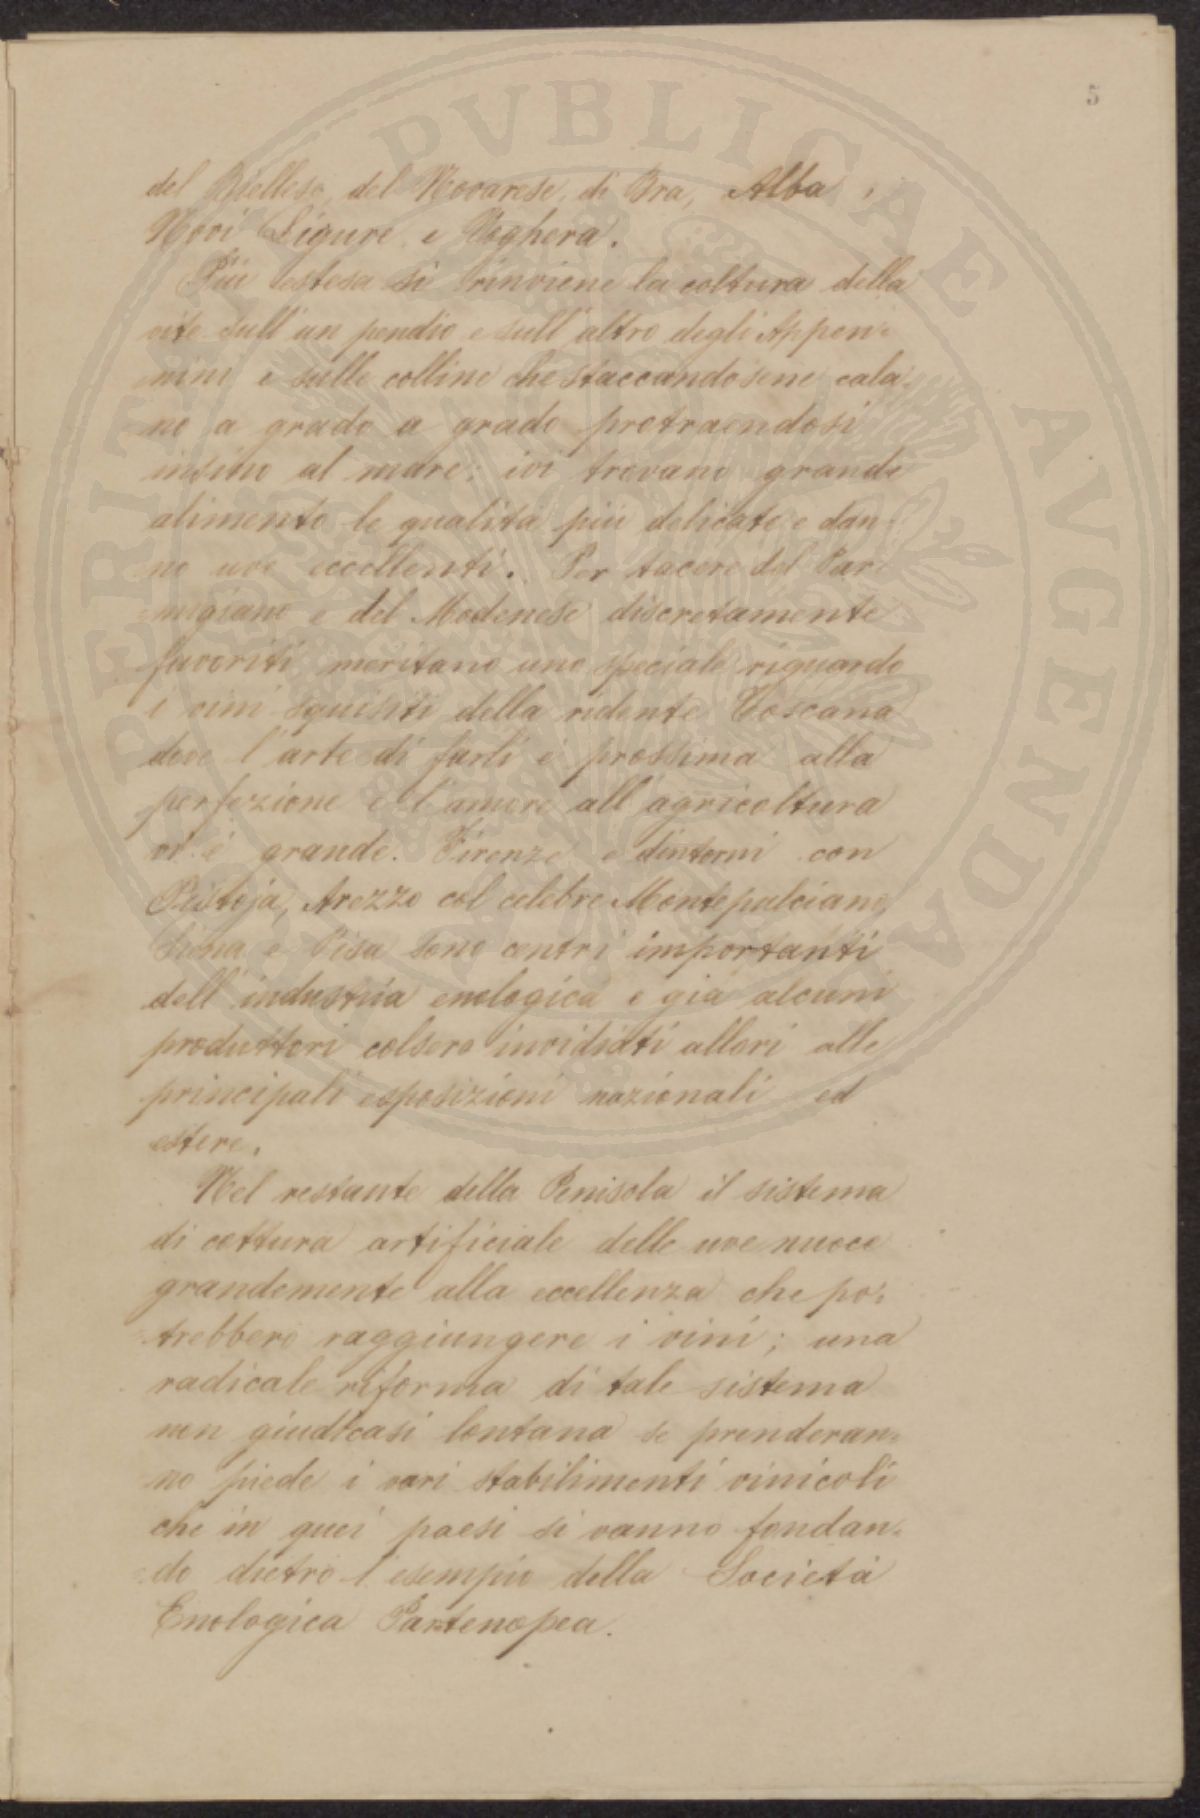 5
del Biellese, del Novarese, di Bra, Alba,
Novi Ligure e Voghera.
Più estesa si rinviene la coltura della
vite sull'un pendio e sull'altro degli Appen=
=nini e sulle colline che staccandosene cala=
=no a grado a grado protraendosi
insino al mare; ivi trovano grande
alimento le qualità più delicate e dan=
=no uve eccellenti. Per tacere del Par=
=migiano e del Modenese discretamente
favoriti meritano uno speciale riguardo
i vini squisiti della ridente Toscana
dove l'arte di farli è prossima alla
perfezione e l'amore all'agricoltura
vi è grande. Firenze e dintorni con
Pistoja, Arezzo col celebre Montepulciano,
Siena e Pisa sono centri importanti
dell'industria enologica e già alcuni
produttori colsero invidiati allori alle
principali esposizioni nazionali ed
estere.
Nel restante della Penisola il sistema
di cottura artificiale delle uve nuoce
grandemente alla eccellenza che po=
=trebbero raggiungere i vini; una
radicale riforma di tale sistema
non giudicasi lontana se prenderan=
=no piede i vari stabilimenti vinicoli
che in quei paesi si vanno fondan=
=do dietro l'esempio della Società
Enologica Partenopea.
PERITAT PVBLICAE AVGENDAE